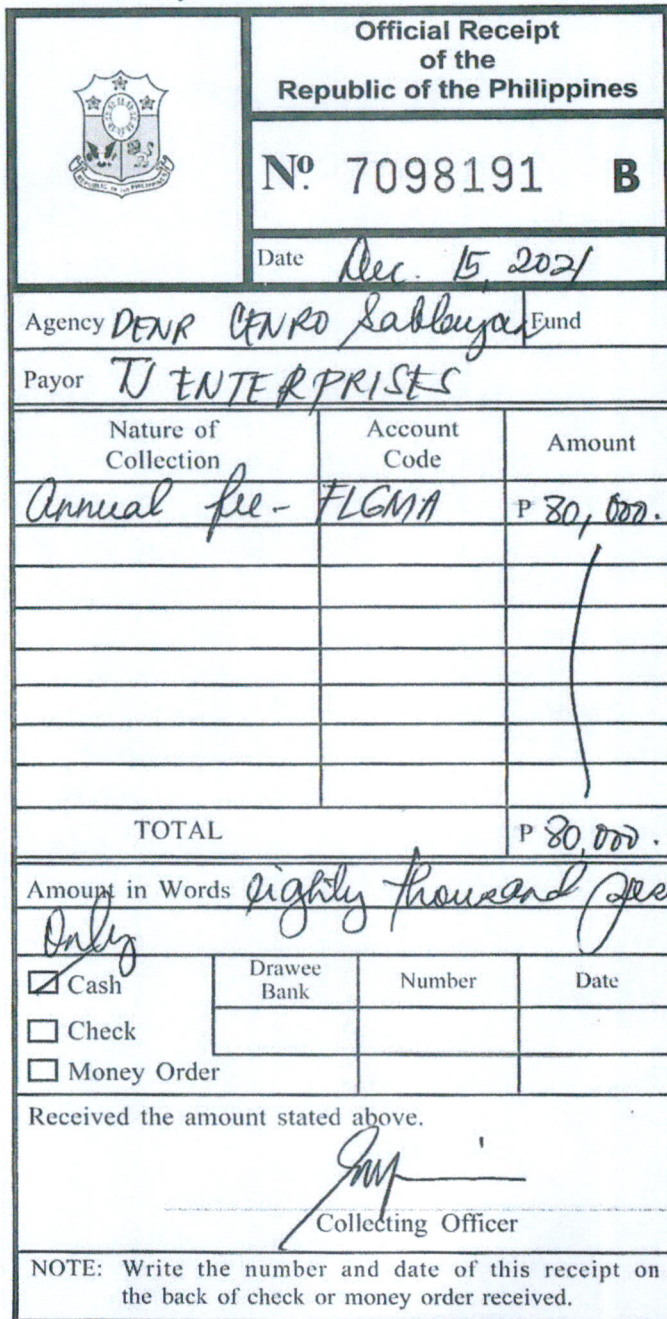 Official Receipt
of the
Republic of the Philippines
REPUBLIC OF THE PHILIPPINES
Nº 7098191 B
Date Dec. 15, 2021
Agency DENR CENRO Sablayan Fund
Payor TJ ENTERPRISES
Nature of Collection Account Code Amount
Annual fee - FLGMA ₱ 80,000.
TOTAL ₱ 80,000.
Amount in Words eighty thousand pes
Only
Cash Drawee Bank Number Date
Check
Money Order
Received the amount stated above.
Collecting Officer
NOTE: Write the number and date of this receipt on
the back of check or money order received.